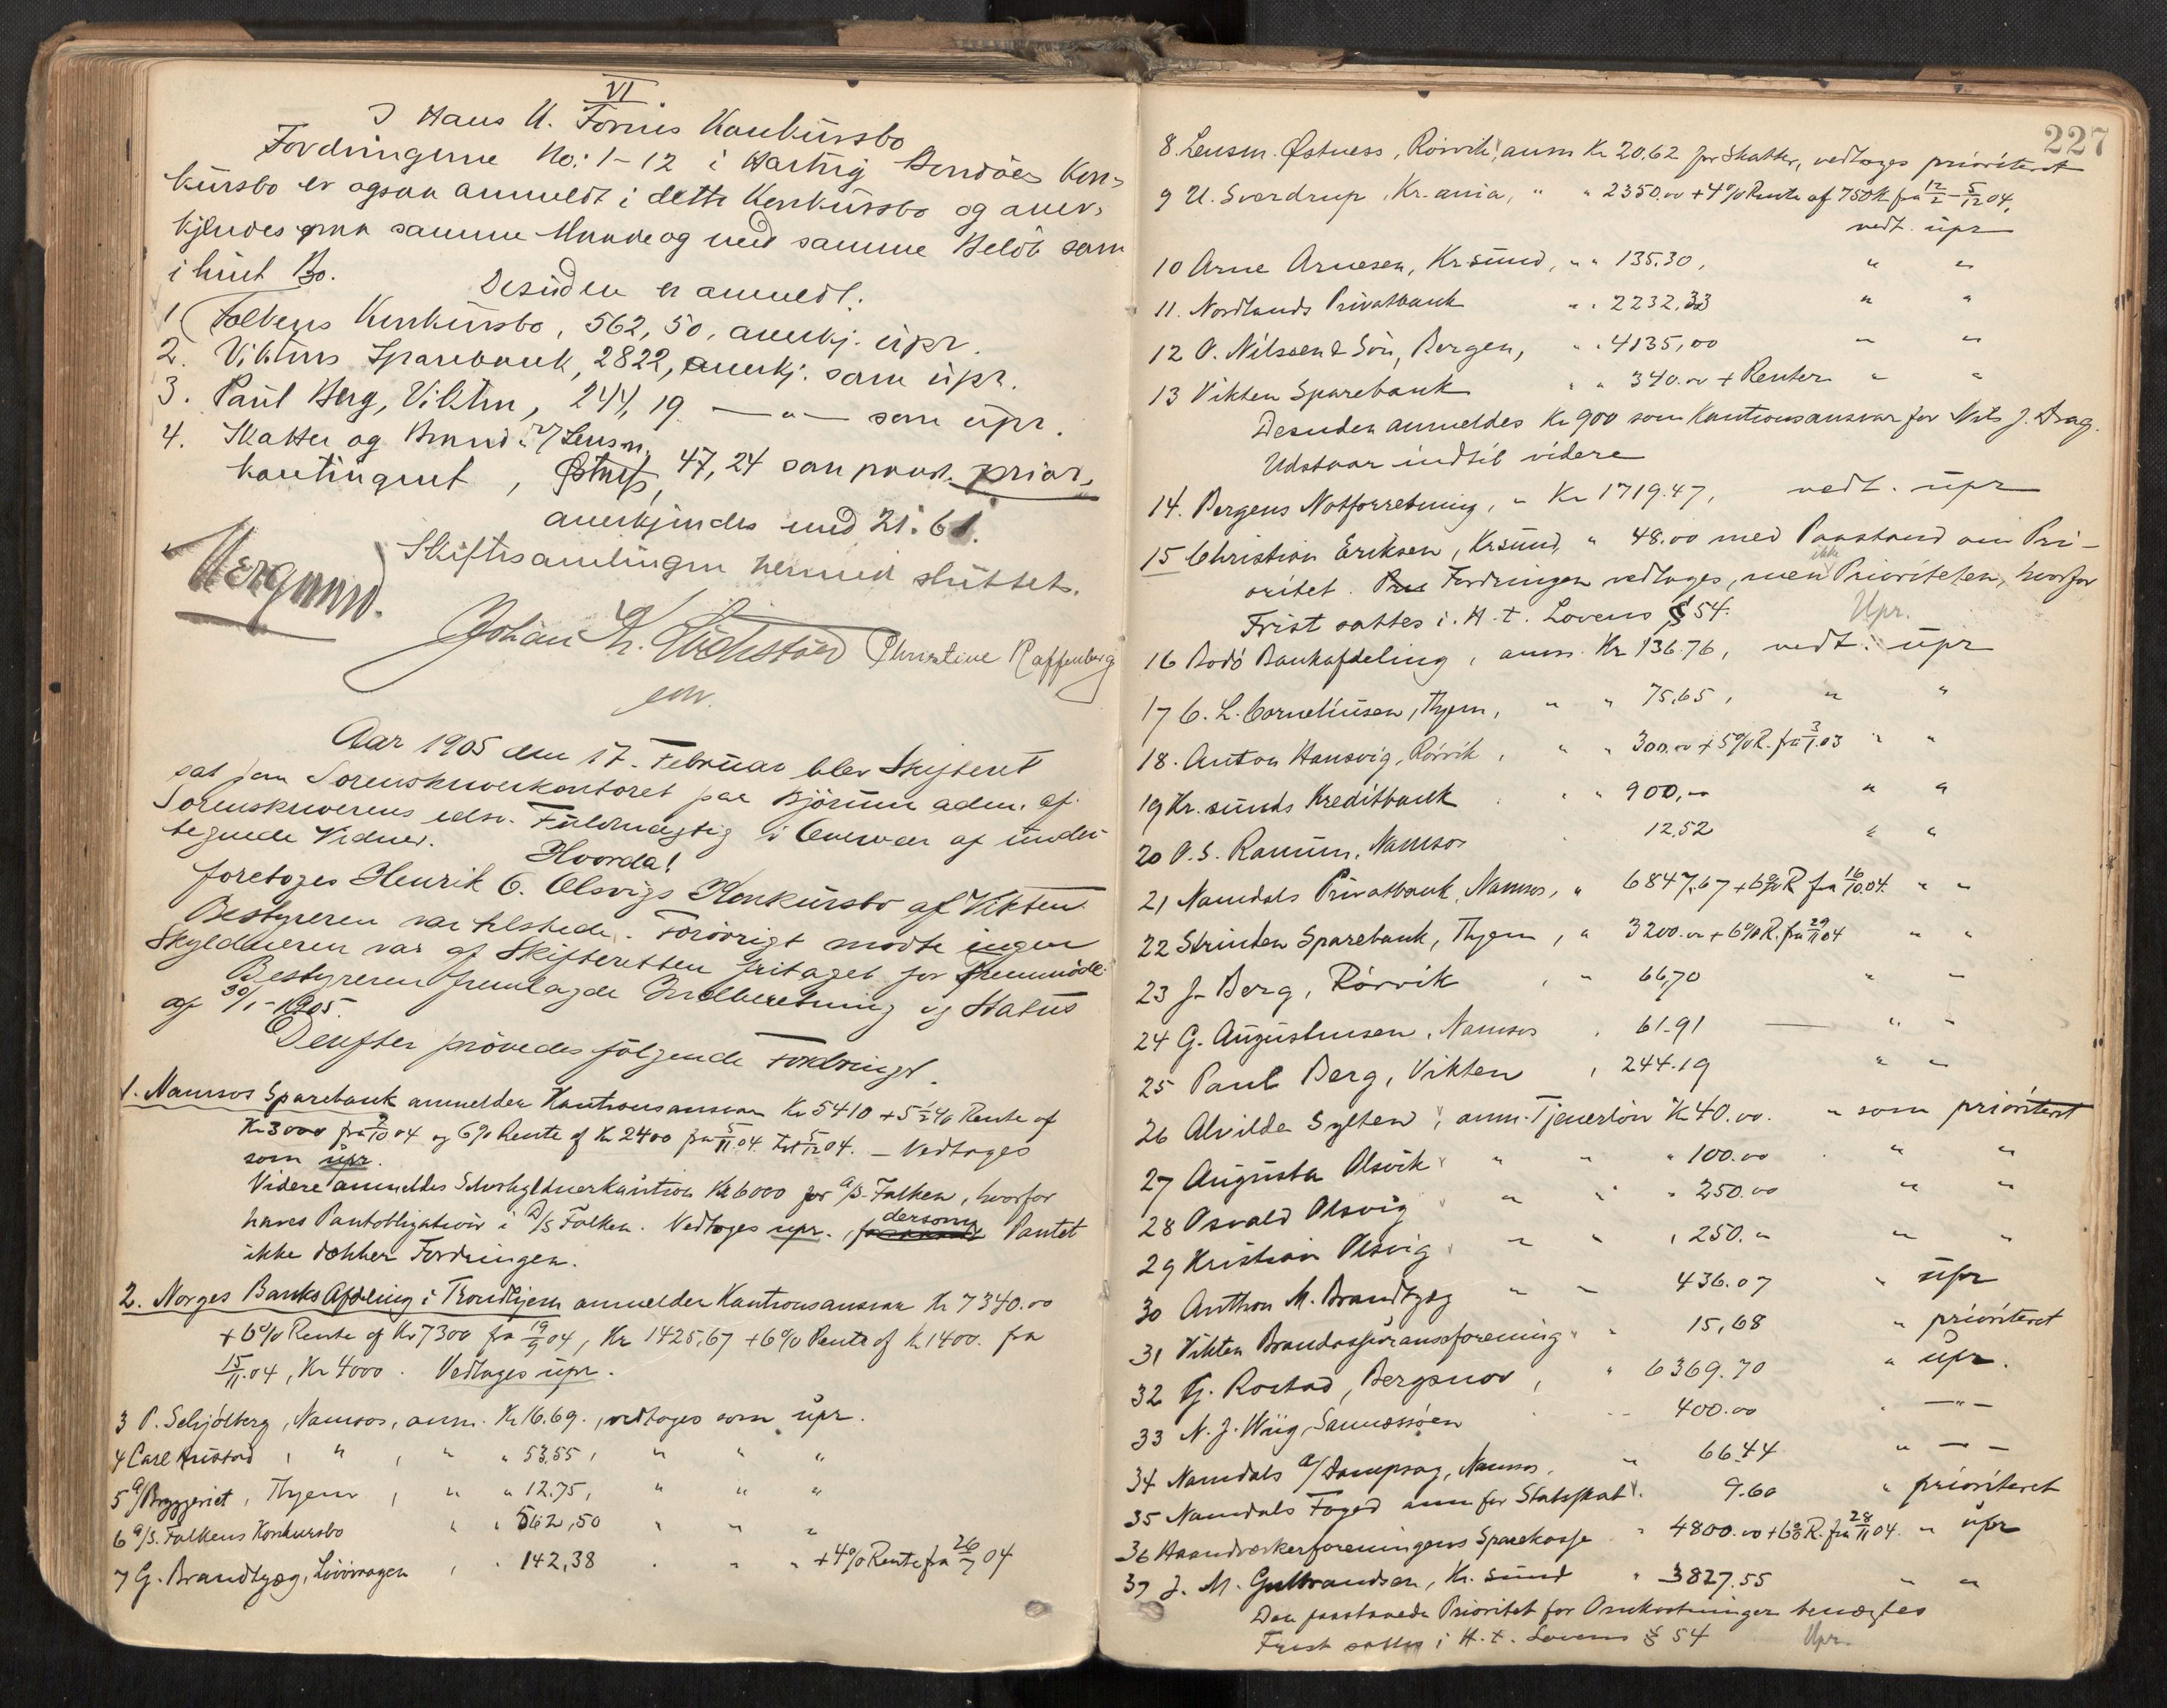 VI
I Hans U. Fornis Konkursbo
Fordringerne No: 1-12 i Hartvig Kon-
kursbo er ogsaa anmeldt i dette Konkursbo og aner-
kjendes paa samme Maade og med samme Beløb som
i hint Bo. Desuden er anmeldt:
1. Falkens Konkursbo, 562,50, anerkj. upr.
2. Viktens Sparebank, 2822, anerkj. som upr.
3. Paul Berg, Vikten, 244,19 — " — som upr.
4. Skatter og Brand- v/ Lensm.
kontingent, Østnes, 47,24 som prior.
anerkjendes med 21.61.
Skiftesamlingen hermed sluttet.
Johan Christine Raffenberg
Aar 1905 den 17. Februar blev Skifteret
sat paa Sorenskriverkontoret paa Bjørum adm. af
Sorenskriverens edsv. Fuldmægtig i Overvær af under-
tegnede Vidner. Hvorda!
foretoges Henrik C. Olsvigs Konkursbo af Vikten.
Bestyreren var tilstede. Forøvrigt mødte ingen
Skyldneren var af Skifteretten fritaget for Fremmøde.
Bestyreren fremlagde Indberetning og Status
af 30/1-1905.
Derefter prøvedes følgende Fordringer.
1. Namsos Sparebank anmelder Kautionsansvar Kr 5410 + 5½ % Rente af
Kr 3000 fra 04 og 6% Rente af Kr 2400 fra 5/11 04 til 5/12 04. — Vedtages
som upr.
Videre anmeldes Selvskyldnerkaution Kr 6000 for A/S Falken, hvorfor
haves Pantobligation i A/S Falken. Vedtages upr., dersom Pantet
ikke dækker Fordringen.
2. Norges Banks Afdeling i Trondhjem anmelder Kautionsansvar Kr 7340.00
+ 6% Rente af Kr 7300 fra 19/9 04, Kr 1425,67 + 6% Rente af Kr 1400. fra
15/11.04, Kr 4000. Vedtages upr.
3 P. Schjølberg, Namsos, anm. Kr 16.69., vedtages som upr.
4 Carl , " , " " 53,55, " " "
5 A/Bryggeriet, Thjem, " " 12.75, " " "
6 A/S. Falkens Konkursbo " " 562,50 " " "
7 G. Brandtzæg, , " 142,38 " " " + 4% Rente fra 26/7 04
227
8. Lensm. Østness, Rørvik, anm Kr 20,62 for Skatter, vedtages prioriteret
9 U. Sverdrup, Kr.ania, " " 2350.00 + 4% Rente af 750 Kr fra 12/2 - 5/12 04,
vedt. upr
10 Arne Arnesen, Kr.sund, " " 135.30, " "
11. Nordlands Privatbank " " 2232,33 " "
12 O. Nilssen & Søn, Bergen, " " 4135,00 " "
13 Vikten Sparebank " " 340.00 + Renter " "
Desuden anmeldes Kr 900 som Kautionsansvar for Nils J. Drag.
Udstaar indtil videre
14. Bergens Notforretning, " Kr 1719.47, vedt. upr
15 Christian Eriksen, Kr.sund, " 48.00 med Paastand om Pri-
oritet. Fordringen vedtages, men ikke Prioriteten, hvorfor
Frist sattes i. H. t. Lovens § 54. Upr.
16 Bodø Bankafdeling, anm. Kr 136.76, vedt. upr
17 C. L. Corneliusen, Thjem, " " 75,65, " "
18. Anton Hansvig, Rørvik, " " 300.00 + 5% R. fra 3/1.03 " "
19 Kr.sunds Kreditbank " " 900,- " "
20 O. S. , Namsos 12,52 " "
21 Namdals Privatbank, Namsos, " 6847,67 + 6% R fra 16/10.04. " "
22 Strinden Sparebank, Thjem, " 3200.00 + 6% R. fra 29/11 04 " "
23 J. Berg, Rørvik , " 66,70 " "
24 G. Augustinsen, Namsos , 61.91 — " "
25 Paul Berg, Vikten , 244.19 " "
26 Alvilde Sylten, anm. Tjenerløn Kr 40.00. " som prioriteret
27 Augusta Olsvik " " " 100.00 " "
28 Osvald Olsvig " " " 250.00 " "
29 Kristian Olsvig " " , 250. " " "
30 Anthon M. Brandtzæg " " 436.07 " upr
31 Vikten Brandassuranceforening " 15,68 " prioriteret
32 G. Rostad, , " 6369.70 " upr.
33 N. J. Wiig, 400.00 " — " —
34 Namdals A/Dampsag, Namsos, " 66.44 " — —
35 Namdals Foged anm for Statsskat. 9.60 " prioriteret
36 Haandverkerforeningens Sparekasse " 4800.00 + 6% R. fra 28/11 04. " upr
37 J. M. Gulbrandsen, Kr.sund " 3827.55 " "
Den paastaaede Prioritet for Omkostninger benægtes
Frist sattes i H. t. Lovens § 54 Upr.